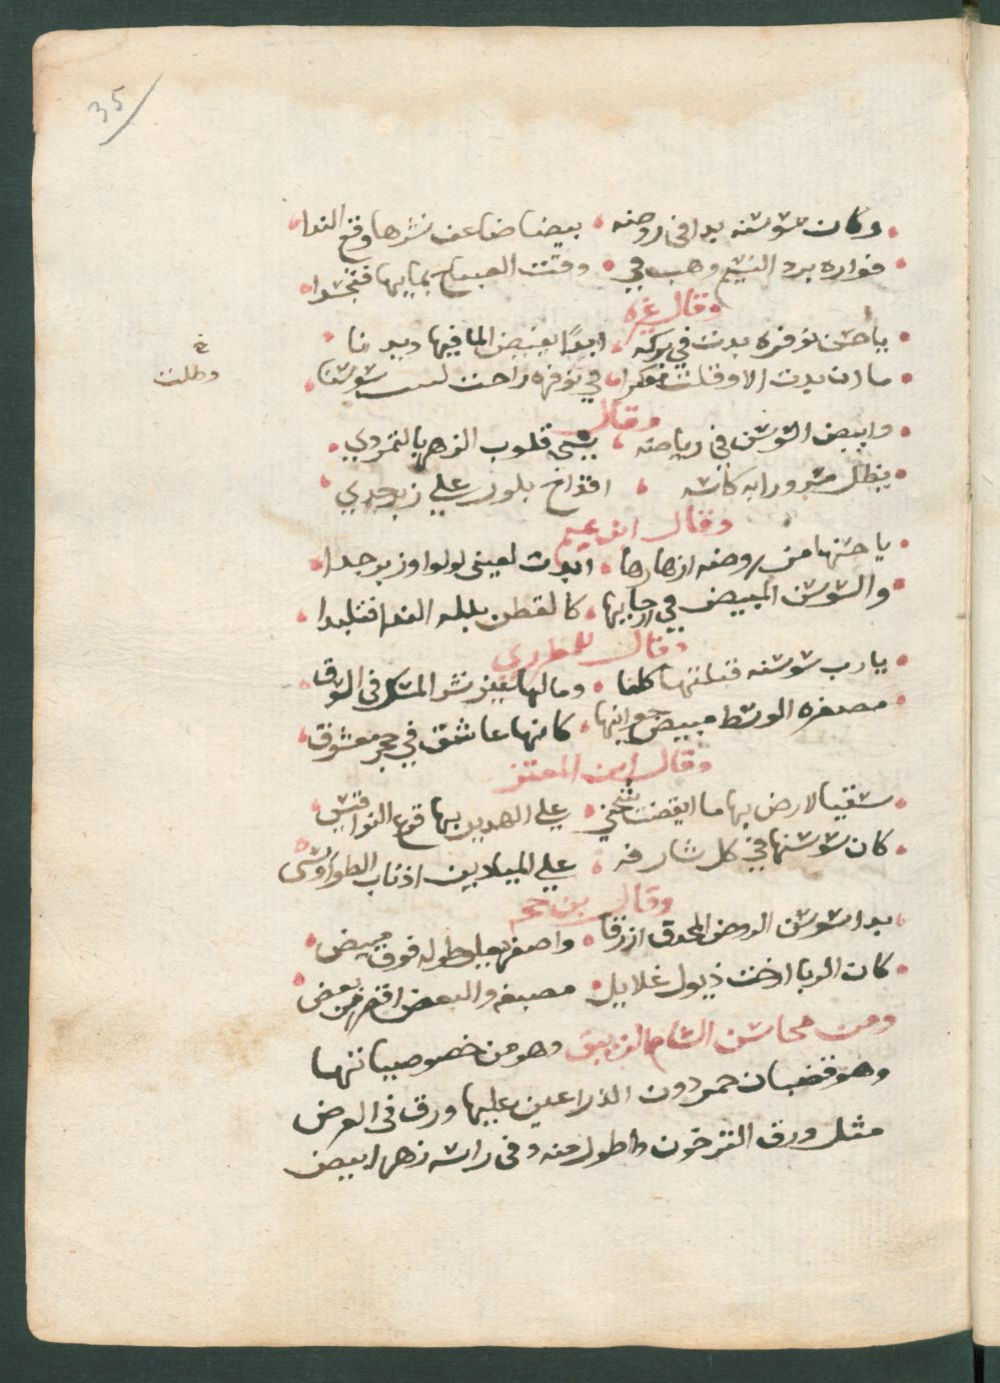 35
وكان سوسنه بدا في روضه • بيضا ضاعف نشرها وقع الندا
فواره برد النسيم وهب في • وقت الصباح بمايها فتجمدا
وقال غيره
يا حسن نوفره بدت في بركه • ابدًا يفيض الما فيها ديدنا
ما ان بدت الا وقلت مفكرا • في نوفره راحت سوسنا
وطلت
وقال
وابيض السوسن في رياضه • يسبي قلوب الزهر بالتمردي
يظل مسرورا به كانه • اقداح بلور علي زبرجدي
وقال ابن تميم
يا حسنها من روضه ازهارها • ابدت لعيني لولوا وزبرجدا
والسوسن المبيض في ارجايها • كالقطن بلله الندا فتلبدا
وقال للمطرزي
يا رب سوسنه قبلتها كلفا • ومالها غير نشر المسك في السوق
مصفره الوسط مبيض جوانبها • كانها عاشق في حجر معشوق
وقال ابن المعتز
سقيا لارض بها ما ايقضت • علي الهدين بها قرع النواقيس
كان سوسنها في كل شارفه • علي الميادين اذناب الطواويس
وقال بن حجر
بدا سوسن الروض المحدق ازرقا • واصفر يعلو طوله فوق مبيض
كان الربا ارخت ذيول غلايل • مصبغه والبعض اقصر من بعض
ومن محاسن الشام وهو من خصوصياتها
وهو قضبان حمر دون الذراعين عليها ورق في العرض
مثل ورق الترخون واطول منه وفي راسه زهر ابيض